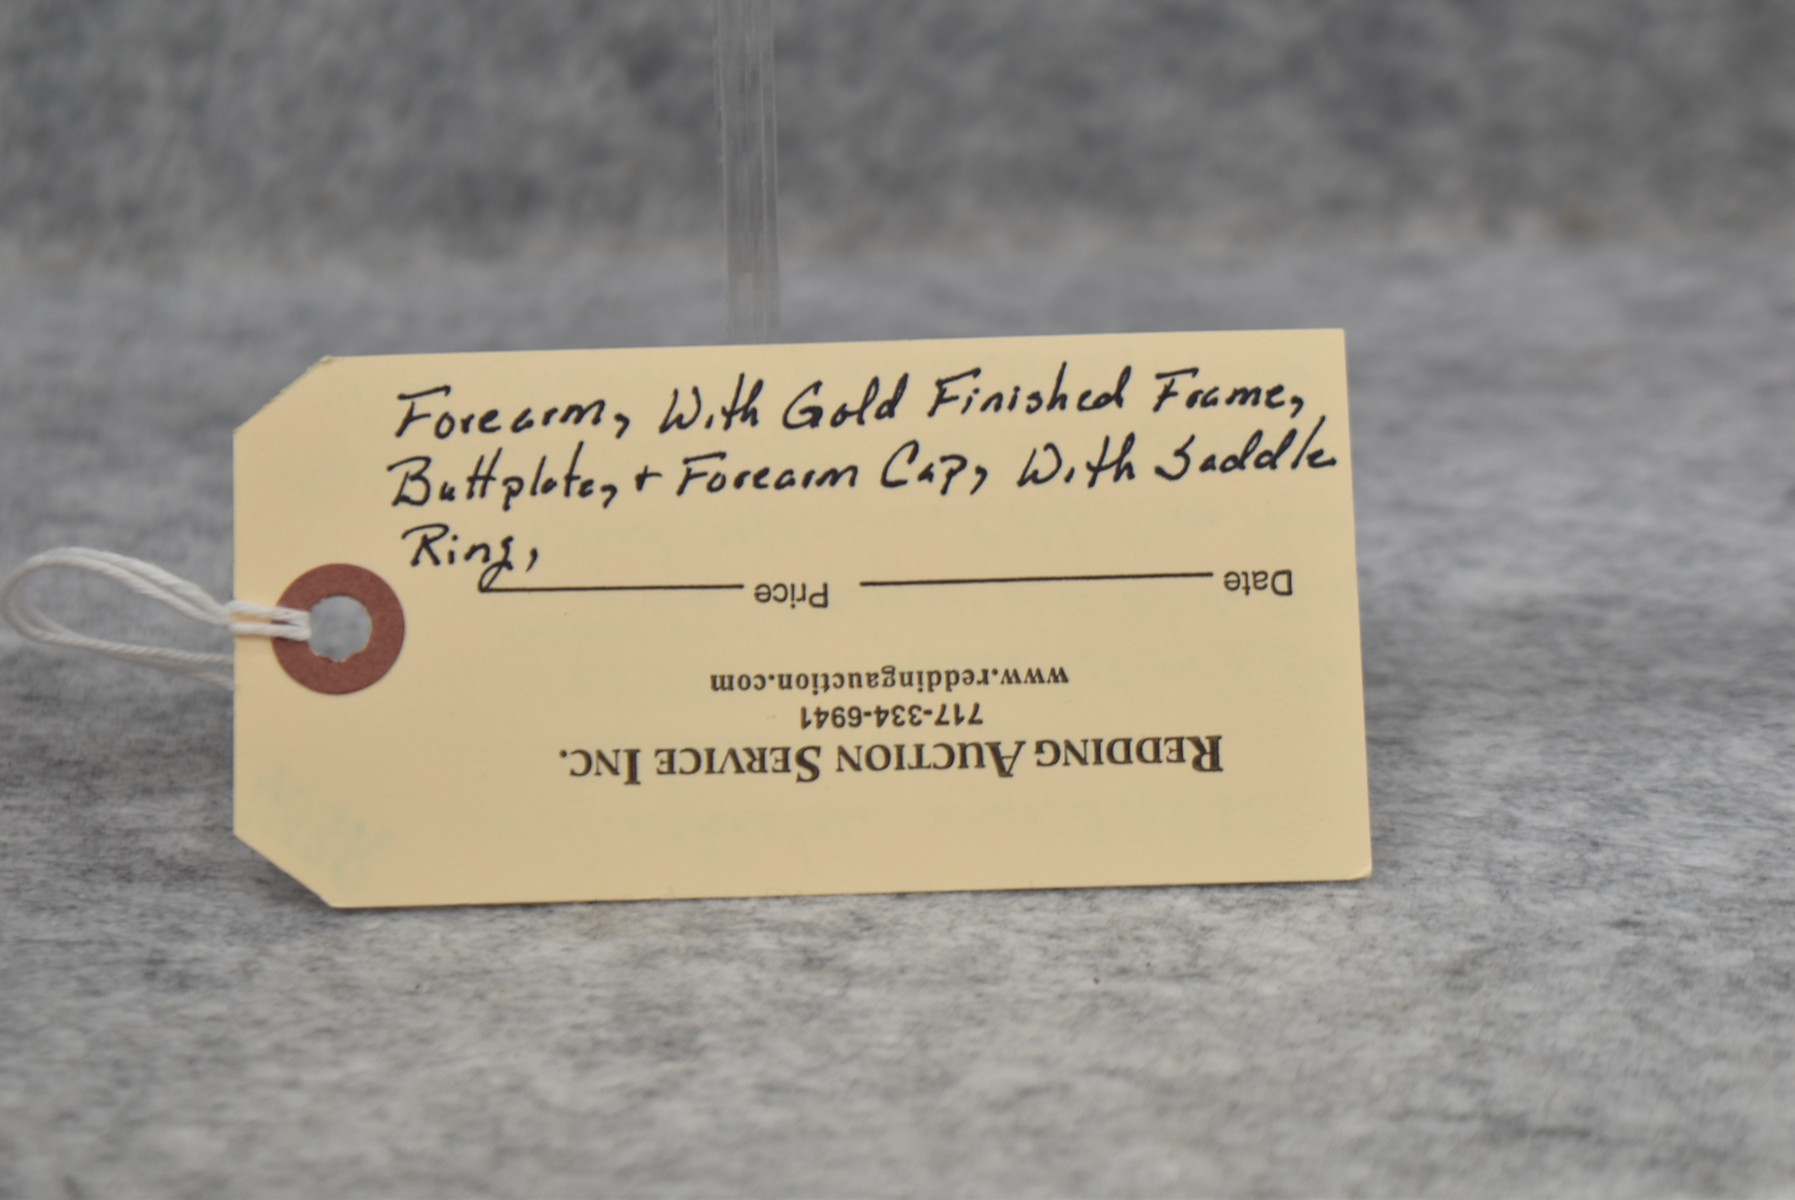 Forearm, With Gold Finished Frame,
Buttplate, + Forearm Cap, With Saddle
Ring,
Date Price
www.reddingauction.com
717-334-6941
REDDING AUCTION SERVICE INC.